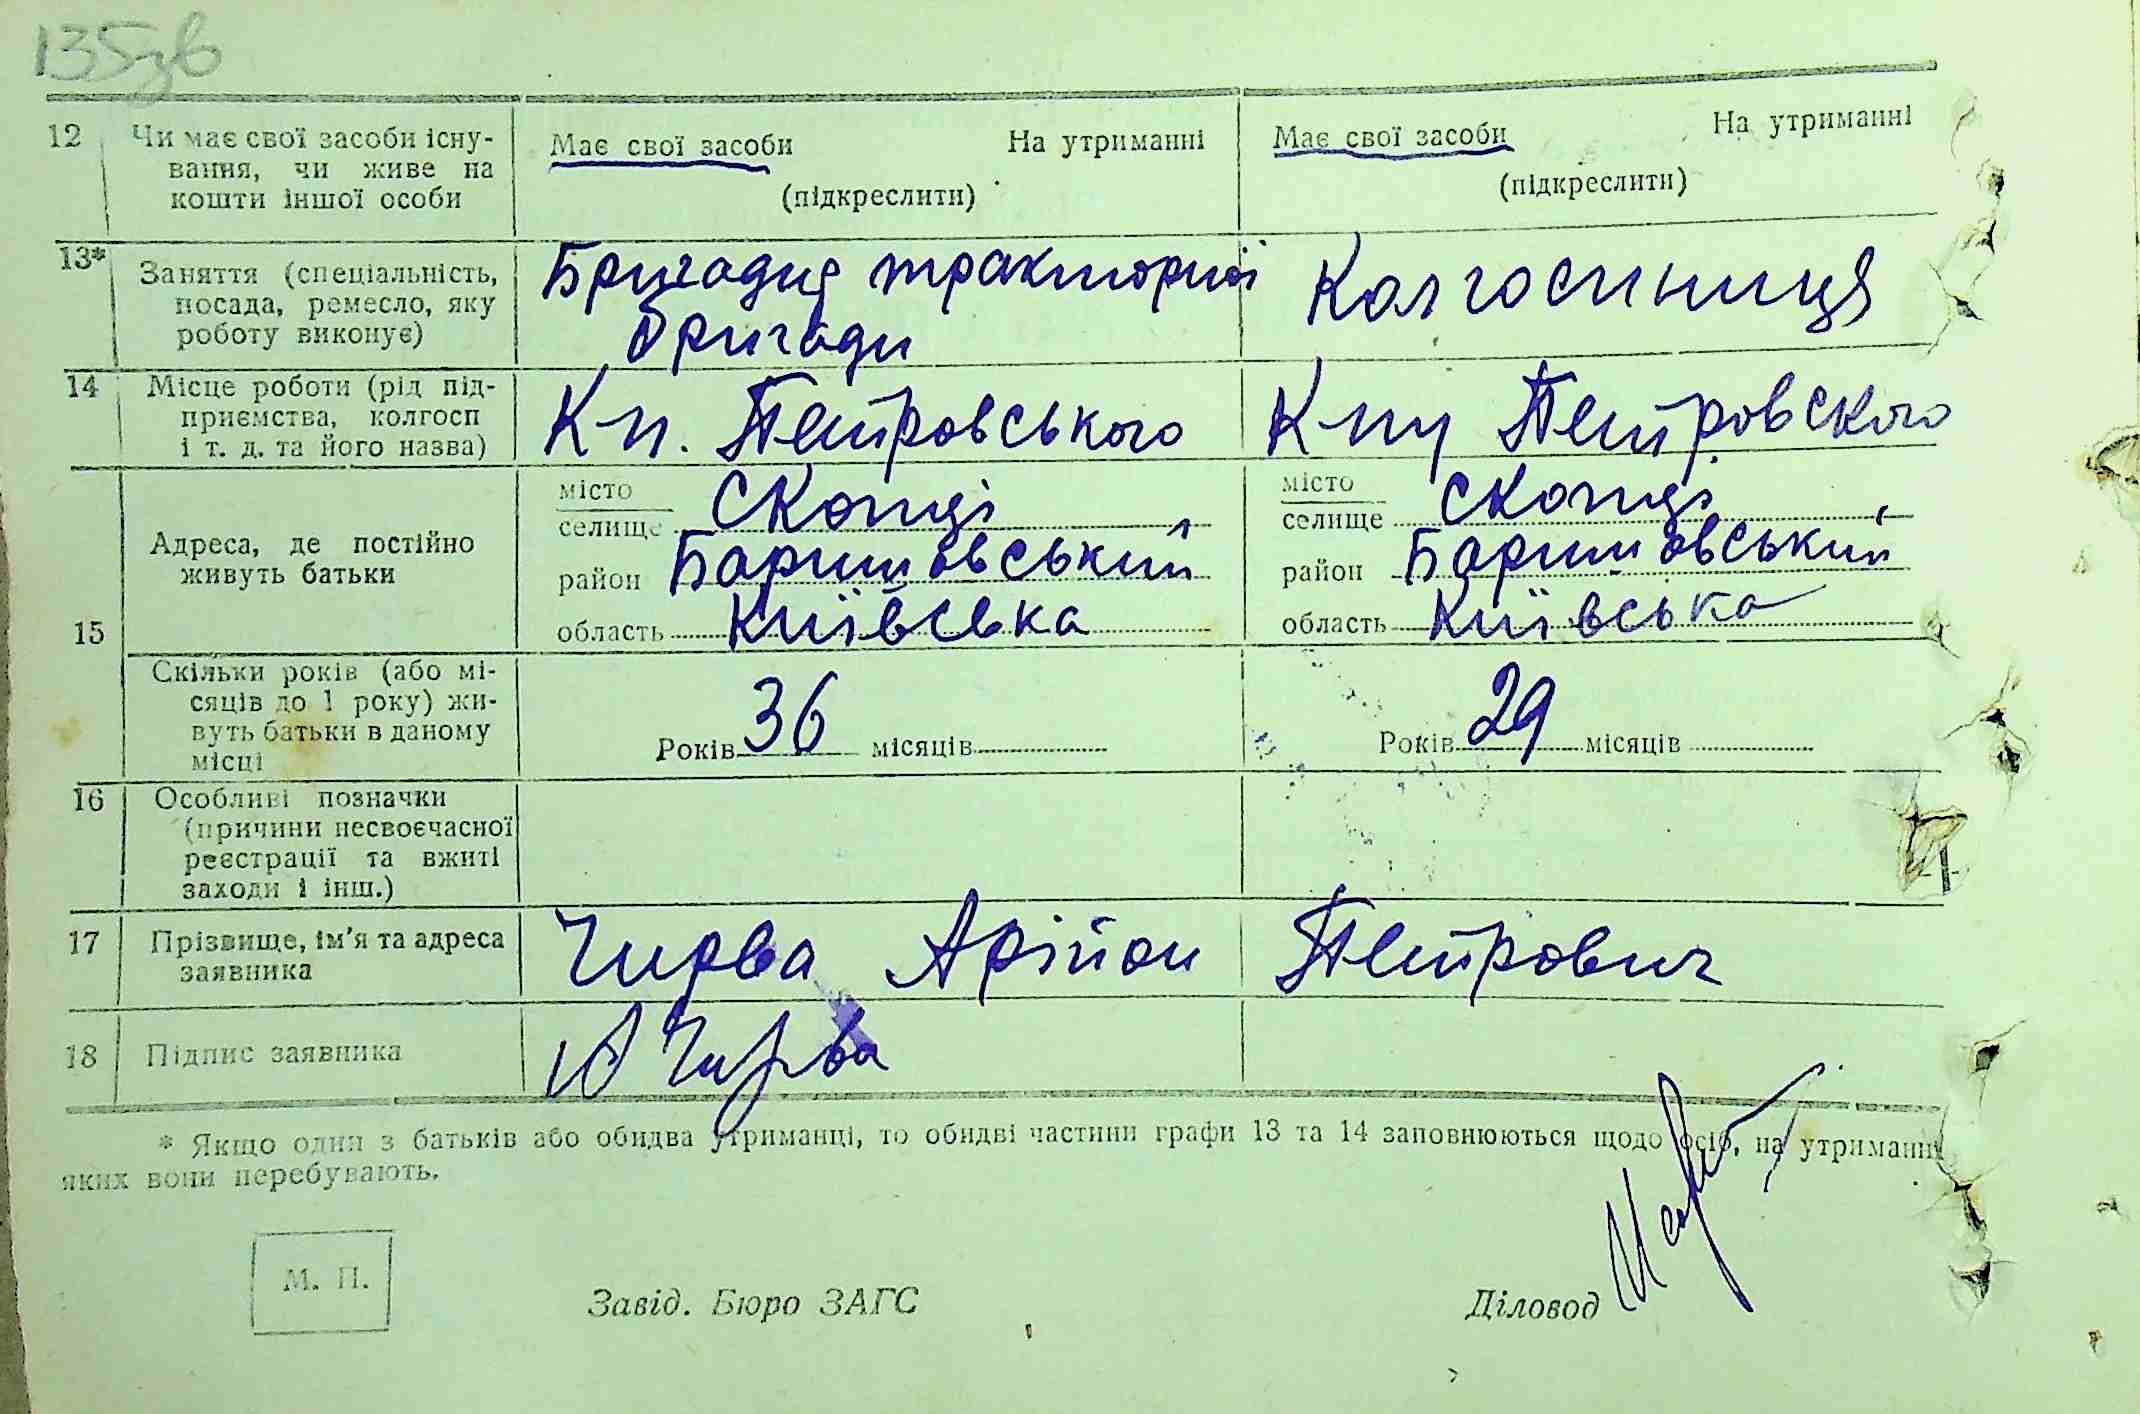 135зв
12 Чи має свої засоби існу-
вання, чи живе на
кошти іншої особи
Має свої засоби На утриманні
(підкреслити)
Має свої засоби На утриманні
(підкреслити)
13* Заняття (спеціальність,
посада, ремесло, яку
роботу виконує)
Бригадир тракторної
бригади
Колгоспниця
14 Місце роботи (рід під-
приємства, колгосп
і т. д. та його назва)
Кп. Петровського
Кпу Петровского
15 Адреса, де постійно
живуть батьки
місто
селище Скопці
район Баришовський
область Київська
місто
селище Скопці
район Баришовський
область Київська
Скільки років (або мі-
сяців до 1 року) жи-
вуть батьки в даному
місці
Років 36 місяців
Років 29 місяців
16 Особливі позначки
(причини несвоєчасної
реєстрації та вжиті
заходи і інш.)
17 Прізвище, ім'я та адреса
заявника
Чирва Арійон Петрович
18 Підпис заявника
А Чирва
* Якщо один з батьків або обидва утриманці, то обидві частини графи 13 та 14 заповнюються щодо осіб, на утриманні
яких вони перебувають.
М. П.
Завід. Бюро ЗАГС
Діловод